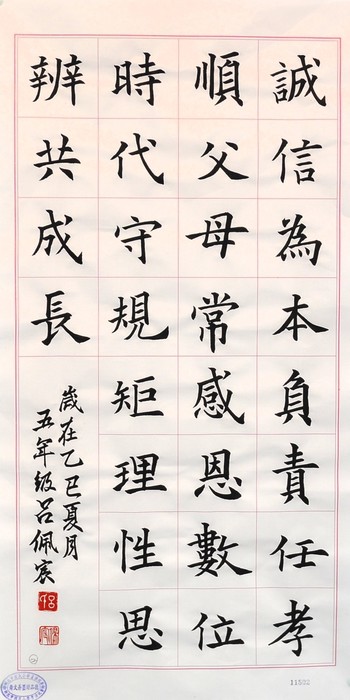 誠信為本負責任孝
順父母常感恩數位
時代守規矩理性思
辨共成長
歲在乙巳夏月
五年級呂佩宸